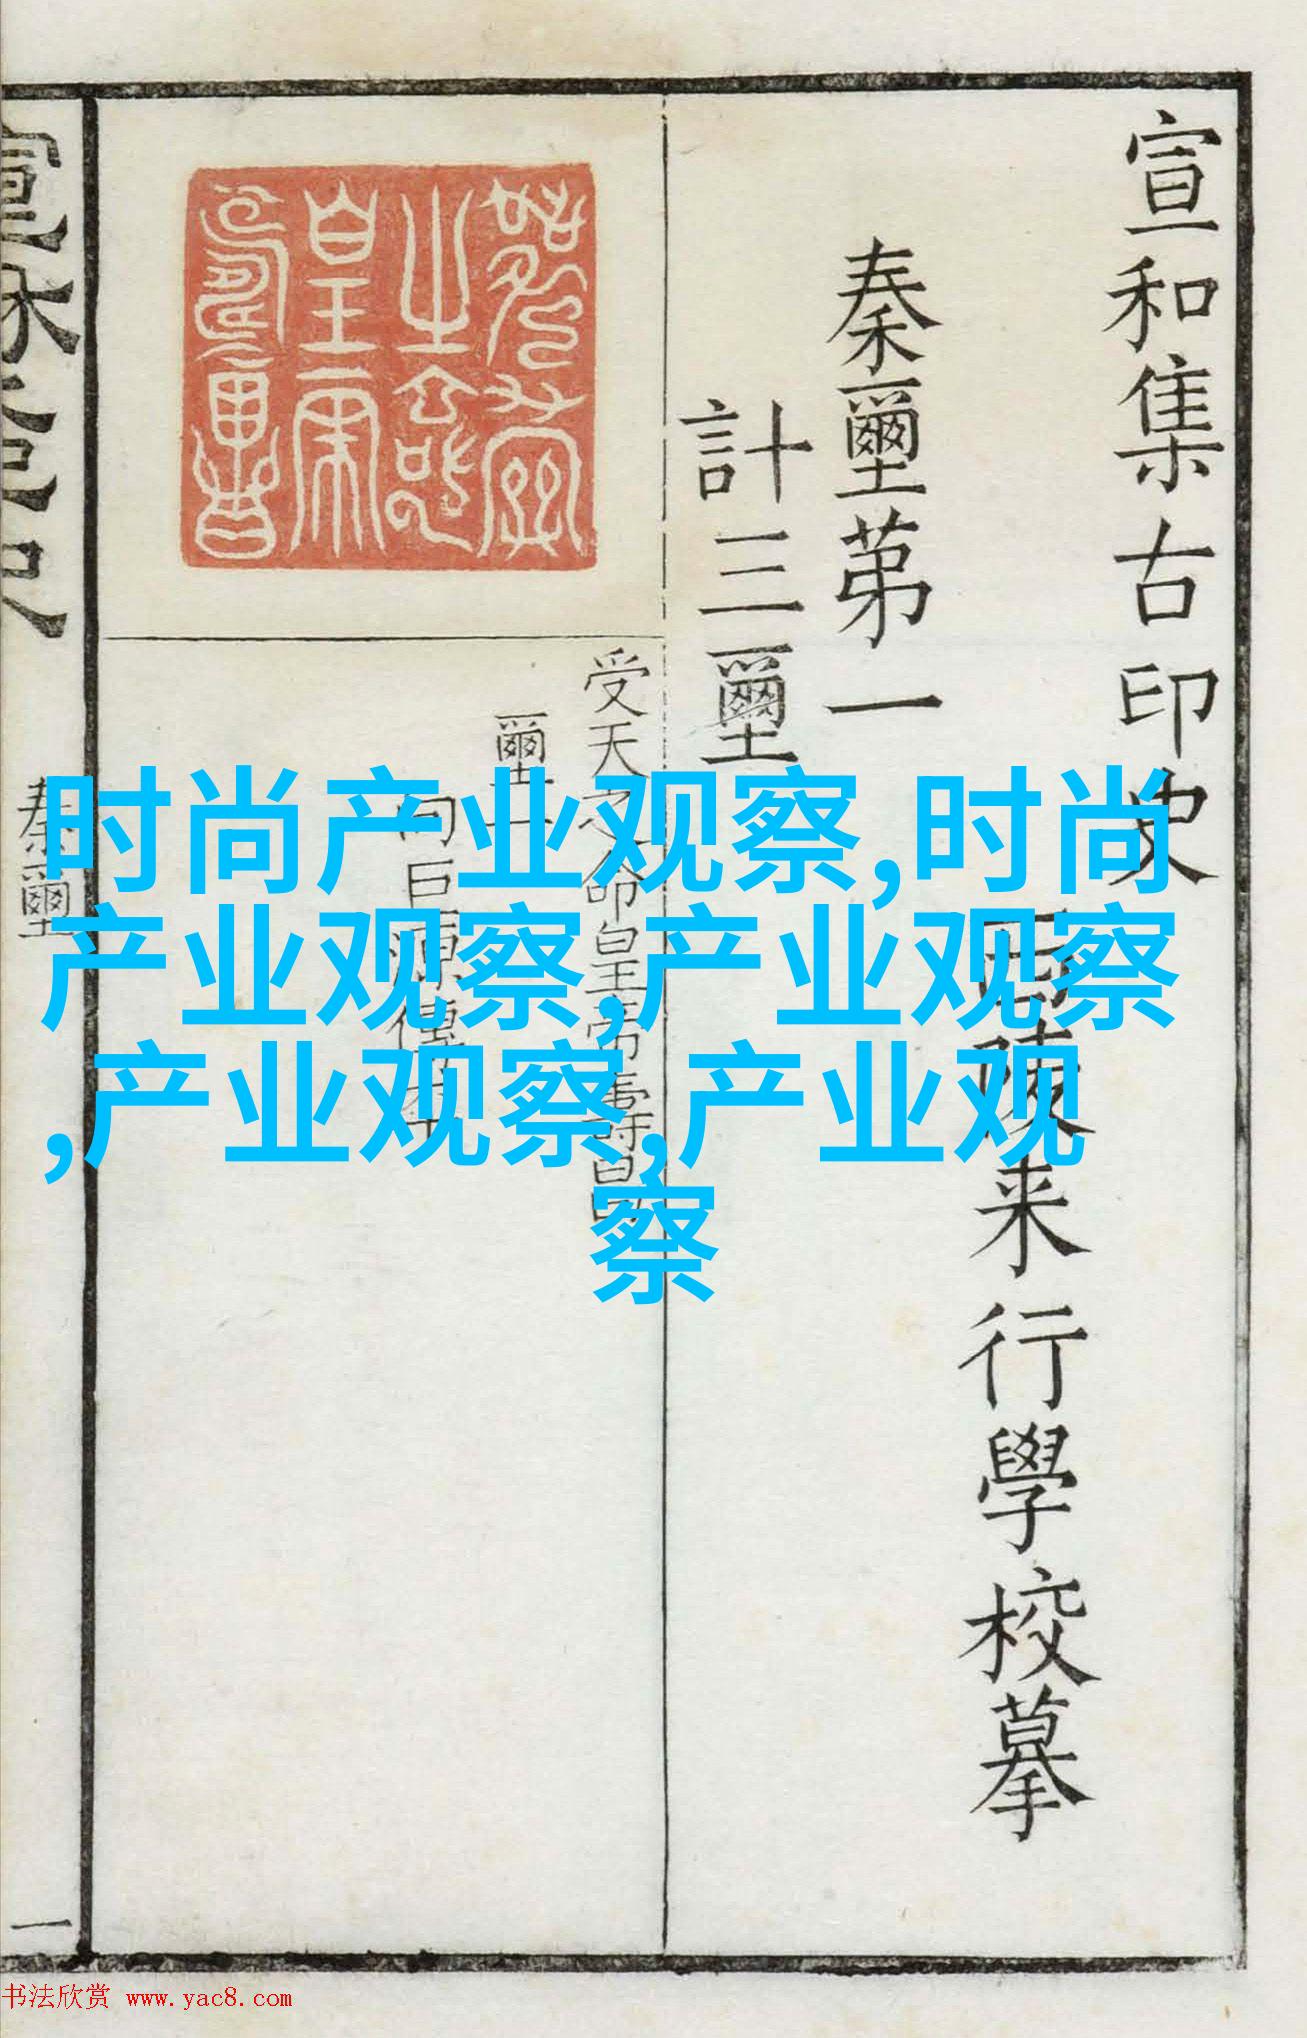 宣和集古印史
西陵来行學校摹
秦璽苐一
計三璽
受天之命皇帝壽昌
璽一
向巨源傳本
秦璽
一
时尚产业观察,时尚
产业观察,产业观察
,产业观察,产业观
察
书法欣赏 www.yac8.com